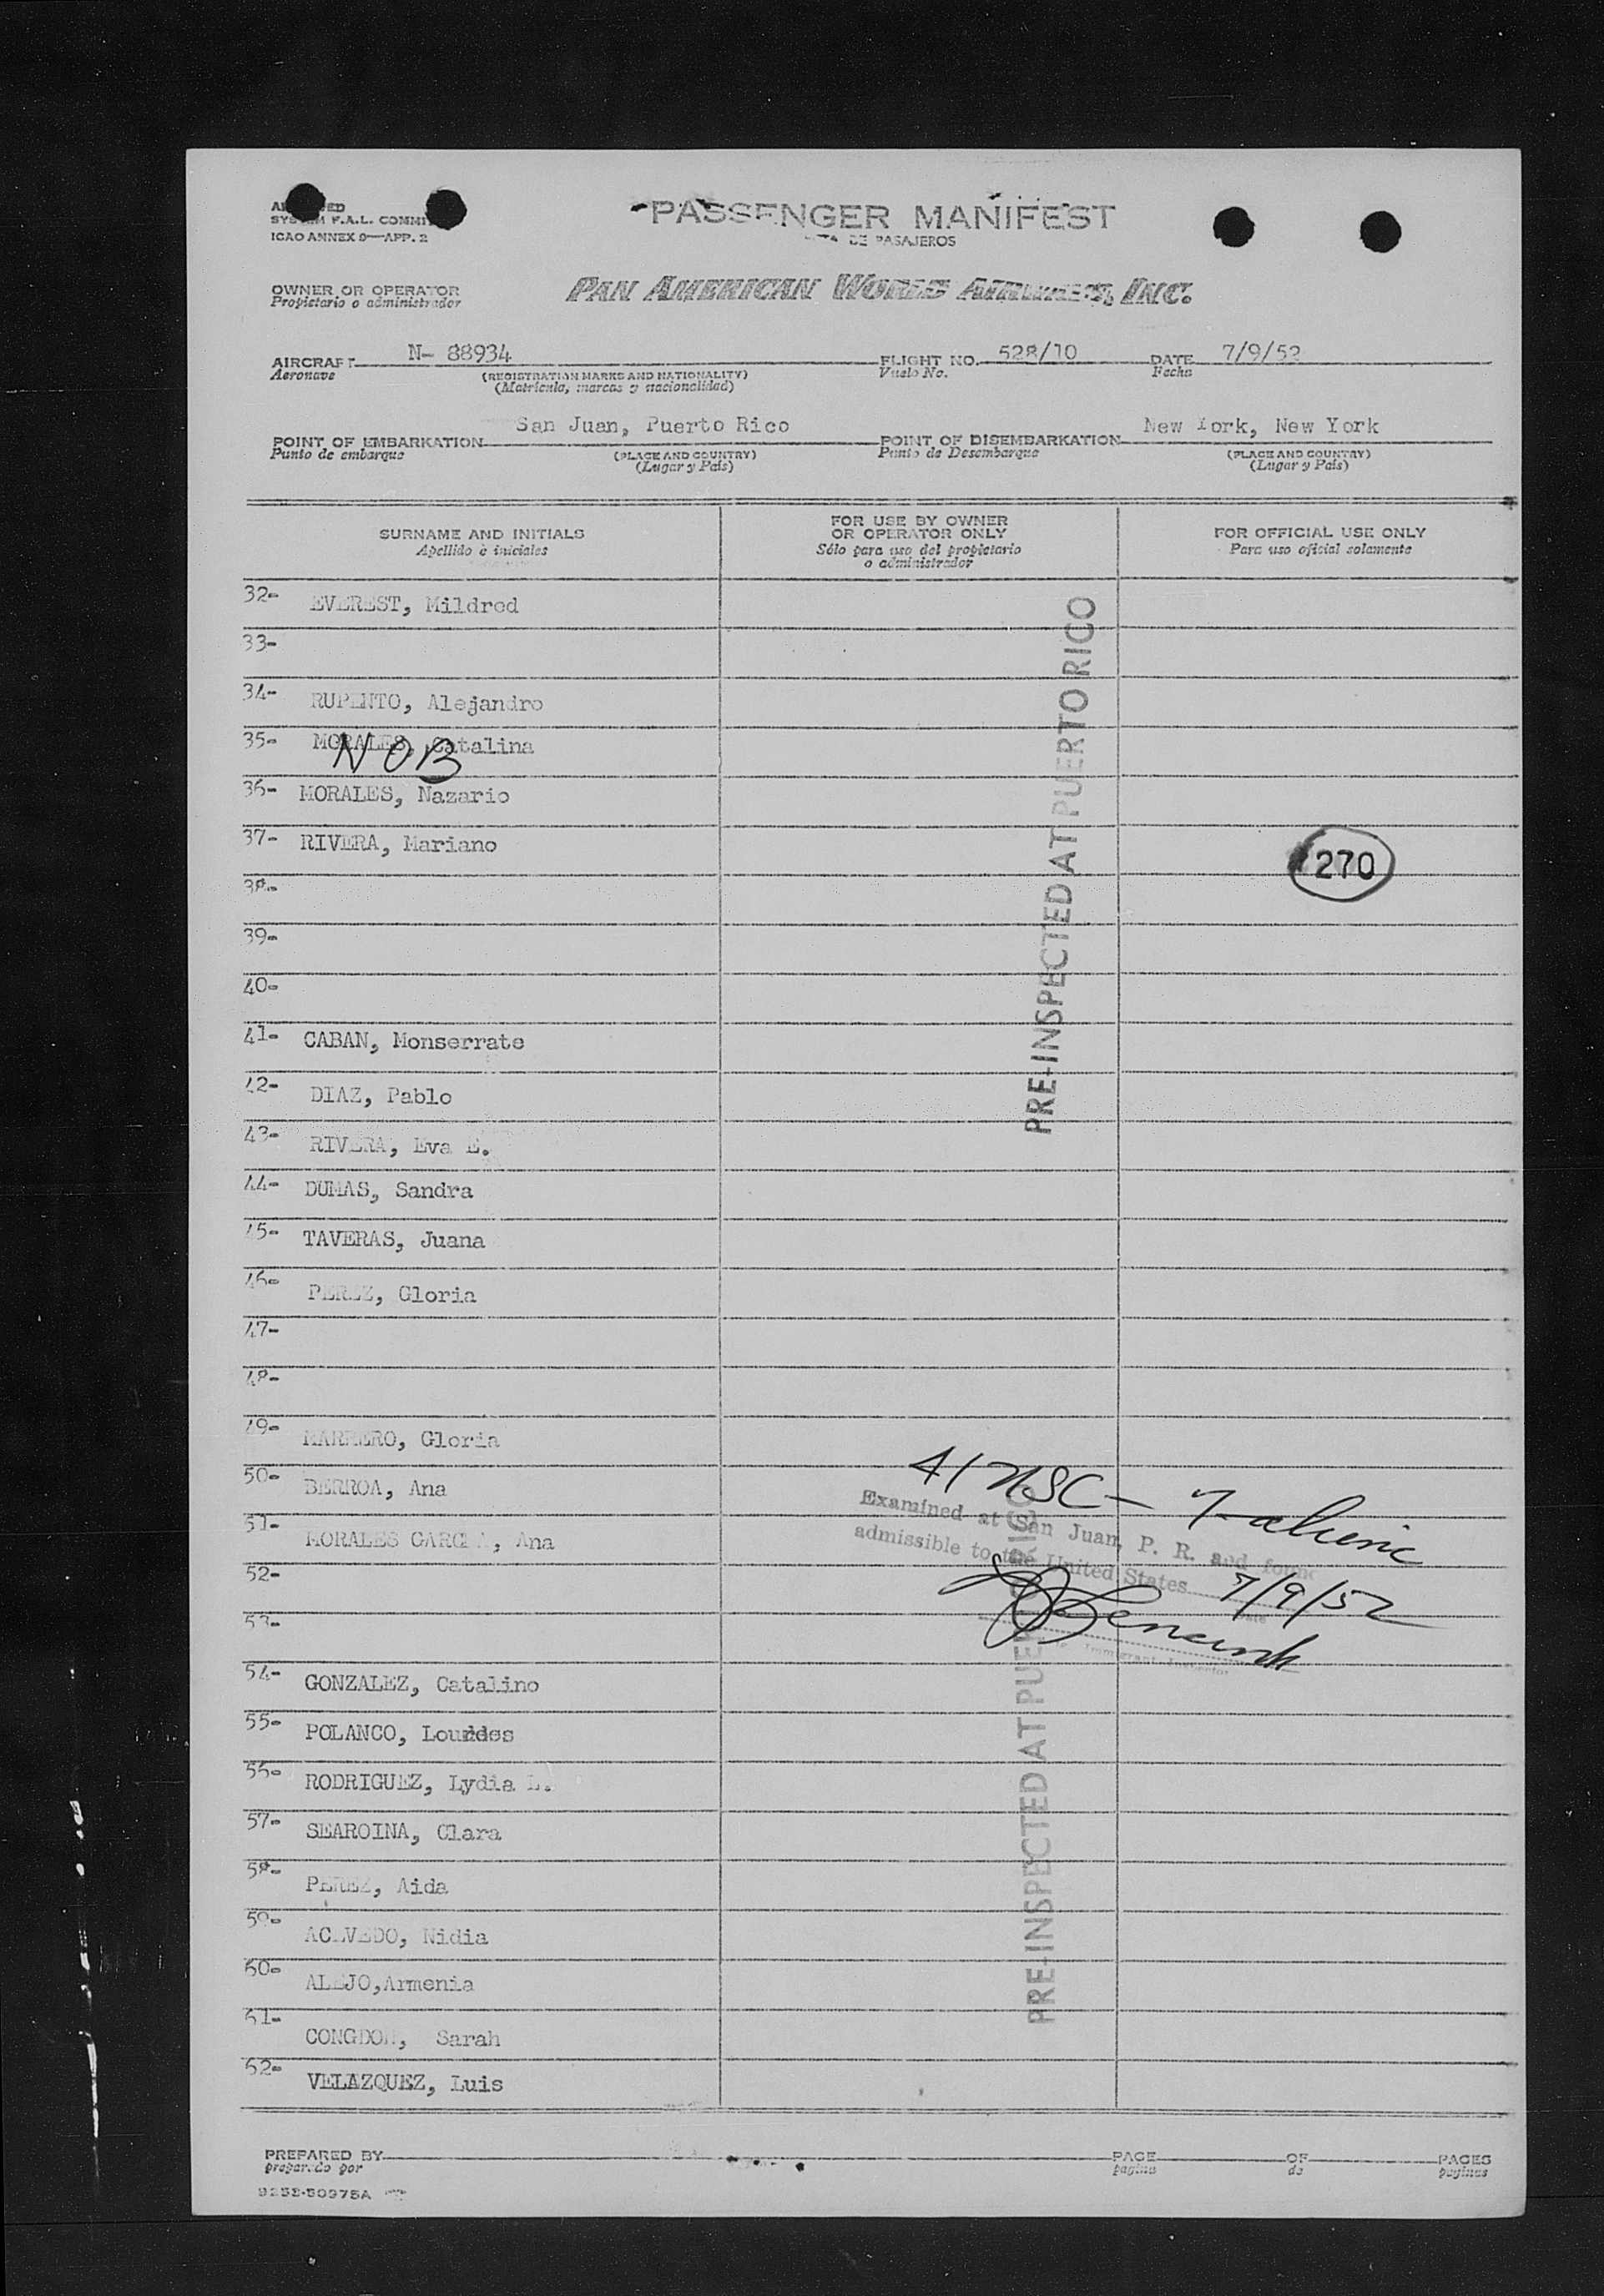 SYSTEM F.A.L. COMMI
ICAO ANNEX 9—APP. 2
PASSENGER MANIFEST
DE PASAJEROS
OWNER OR OPERATOR
Propietario o administrador
PAN AMERICAN WORLD AIRWAYS, INC.
AIRCRAFT N- 88934 FLIGHT NO. 528/10 DATE 7/9/52
Aeronave (REGISTRATION MARKS AND NATIONALITY) Vuelo No. Fecha
(Matrícula, marcas y nacionalidad)
San Juan, Puerto Rico New York, New York
POINT OF EMBARKATION POINT OF DISEMBARKATION
Punto de embarque (PLACE AND COUNTRY) Punto de Desembarque (PLACE AND COUNTRY)
(Lugar y País) (Lugar y País)
SURNAME AND INITIALS
Apellido e iniciales
FOR USE BY OWNER
OR OPERATOR ONLY
Sólo para uso del propietario
o administrador
FOR OFFICIAL USE ONLY
Para uso oficial solamente
32- EVEREST, Mildred
33-
34- RUPENTO, Alejandro
35- MORALES, Catalina
NOB
36- MORALES, Nazario
37- RIVERA, Mariano
270
38-
39-
40-
41- CABAN, Monserrate
42- DIAZ, Pablo
43- RIVERA, Eva E.
44- DUMAS, Sandra
45- TAVERAS, Juana
46- PEREZ, Gloria
47-
48-
49- MARRERO, Gloria
50- BERROA, Ana
51- MORALES GARCIA, Ana
52-
53-
54- GONZALEZ, Catalino
55- POLANCO, Lourdes
56- RODRIGUEZ, Lydia E.
57- SEAROINA, Clara
58- PEREZ, Aida
59- ACEVEDO, Nidia
60- ALEJO,Armenia
61- CONGDON, Sarah
62- VELAZQUEZ, Luis
PRE-INSPECTED AT PUERTO RICO
41 USC - 7-aliens
Examined at San Juan, P. R. and found
admissible to the United States 7/9/52
Date
Immigrant Inspector
PRE-INSPECTED AT PUERTO RICO
PREPARED BY PAGE OF PAGES
preparado por pagina de paginas
9252-50975A